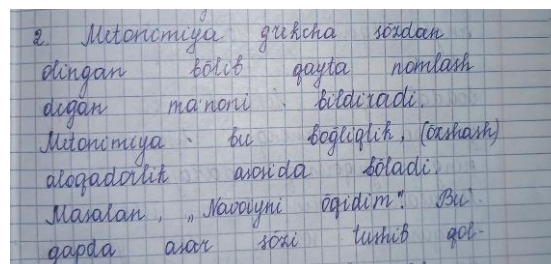 2. Metonimiya grekcha sözdan
olingan bölib qayta nomlash
degan ma'noni bildiradi.
Metonimiya - bu bogliqlik, (öxshash)
aloqadorlik asosida böladi.
Masalan, „Navoiyni öqidim". Bu
gapda asar sözi tushib qol-